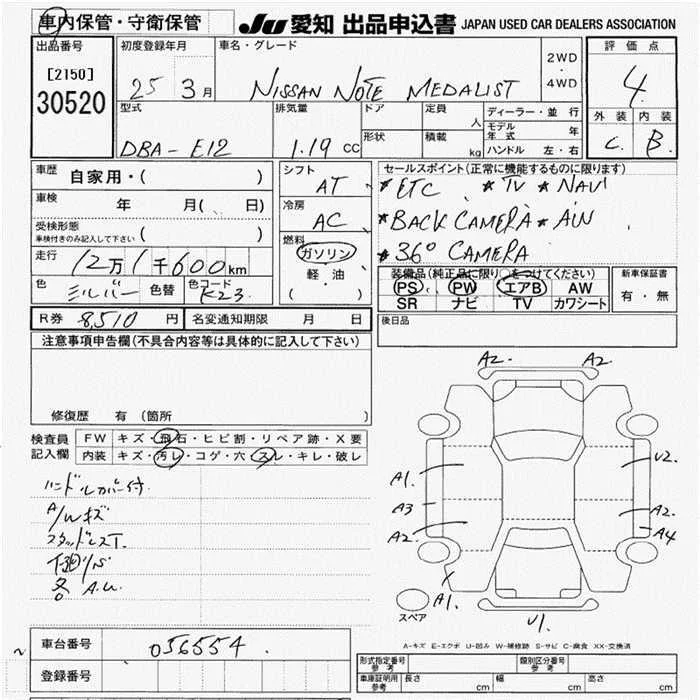 車内保管・守衛保管
JU 愛知 出品申込書 JAPAN USED CAR DEALERS ASSOCIATION
出品番号
[2150]
30520
初度登録年月
25 3月
車名・グレード
NISSAN NOTE MEDALIST
2WD
4WD
評価点
4
外装 内装
C. B.
型式
DBA-E12
排気量
1.19 CC
ドア
形状
定員
人
積載
kg
ディーラー・並行
モデル年式 年
ハンドル 左・右
車歴
自家用・( )
車検
年 月( 日)
受検形態
車検付きのみ記入して下さい ( )
走行
12万1千600km
色
シルバー
色替
色コード
K23
シフト
AT
冷房
AC
燃料
ガソリン
・
軽・油
( )
セールスポイント(正常に機能するものに限ります)
* ETC * TV * NAVI
* BACK CAMERA * A/W
* 360 CAMERA
装備品(純正品に限り○をつけてください)
PS PW エアB AW
SR ナビ TV カワシート
新車保証書
有・無
R券 8,510 円
名変通知期限 月 日
後日品
注意事項申告欄(不具合内容等は具体的に記入して下さい)
修復歴 有(箇所 )
検査員
記入欄
FW キズ・飛石・ヒビ割・リペア跡・X要
内装 キズ・汚レ・コゲ・穴・スレ・キレ・破レ
ハンドルカバー付
A/Wキズ
スタッドレスT.
下廻りS
各 A.U.
A2. A2.
A1. U2.
A3 A2.
A2. A4
A1.
U1.
スペア
A-キズ E-エクボ U-凹み W-補修跡 S-サビ C-腐食 XX-交換済
車台番号 056554
登録番号
形式指定番号
参考
類別区分番号
参考
車庫証明用
参考
長さ cm 幅 cm 高さ cm